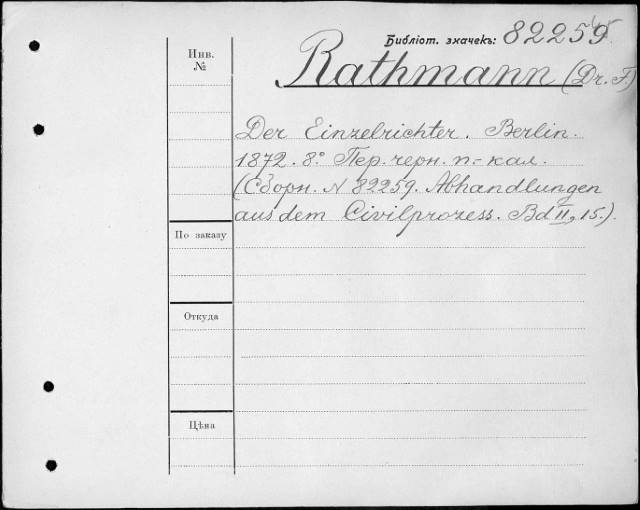 Библіот. значекъ: 82259
Инв.
№
Rathmann (Dr. F.)
Der Einzelrichter. Berlin.
1872. 8° Пер. черн. п.-кал.
(Сборн. N 82259. Abhandlungen
aus dem Civilprozess. Bd II, 15.).
По заказу
Откуда
Цѣна